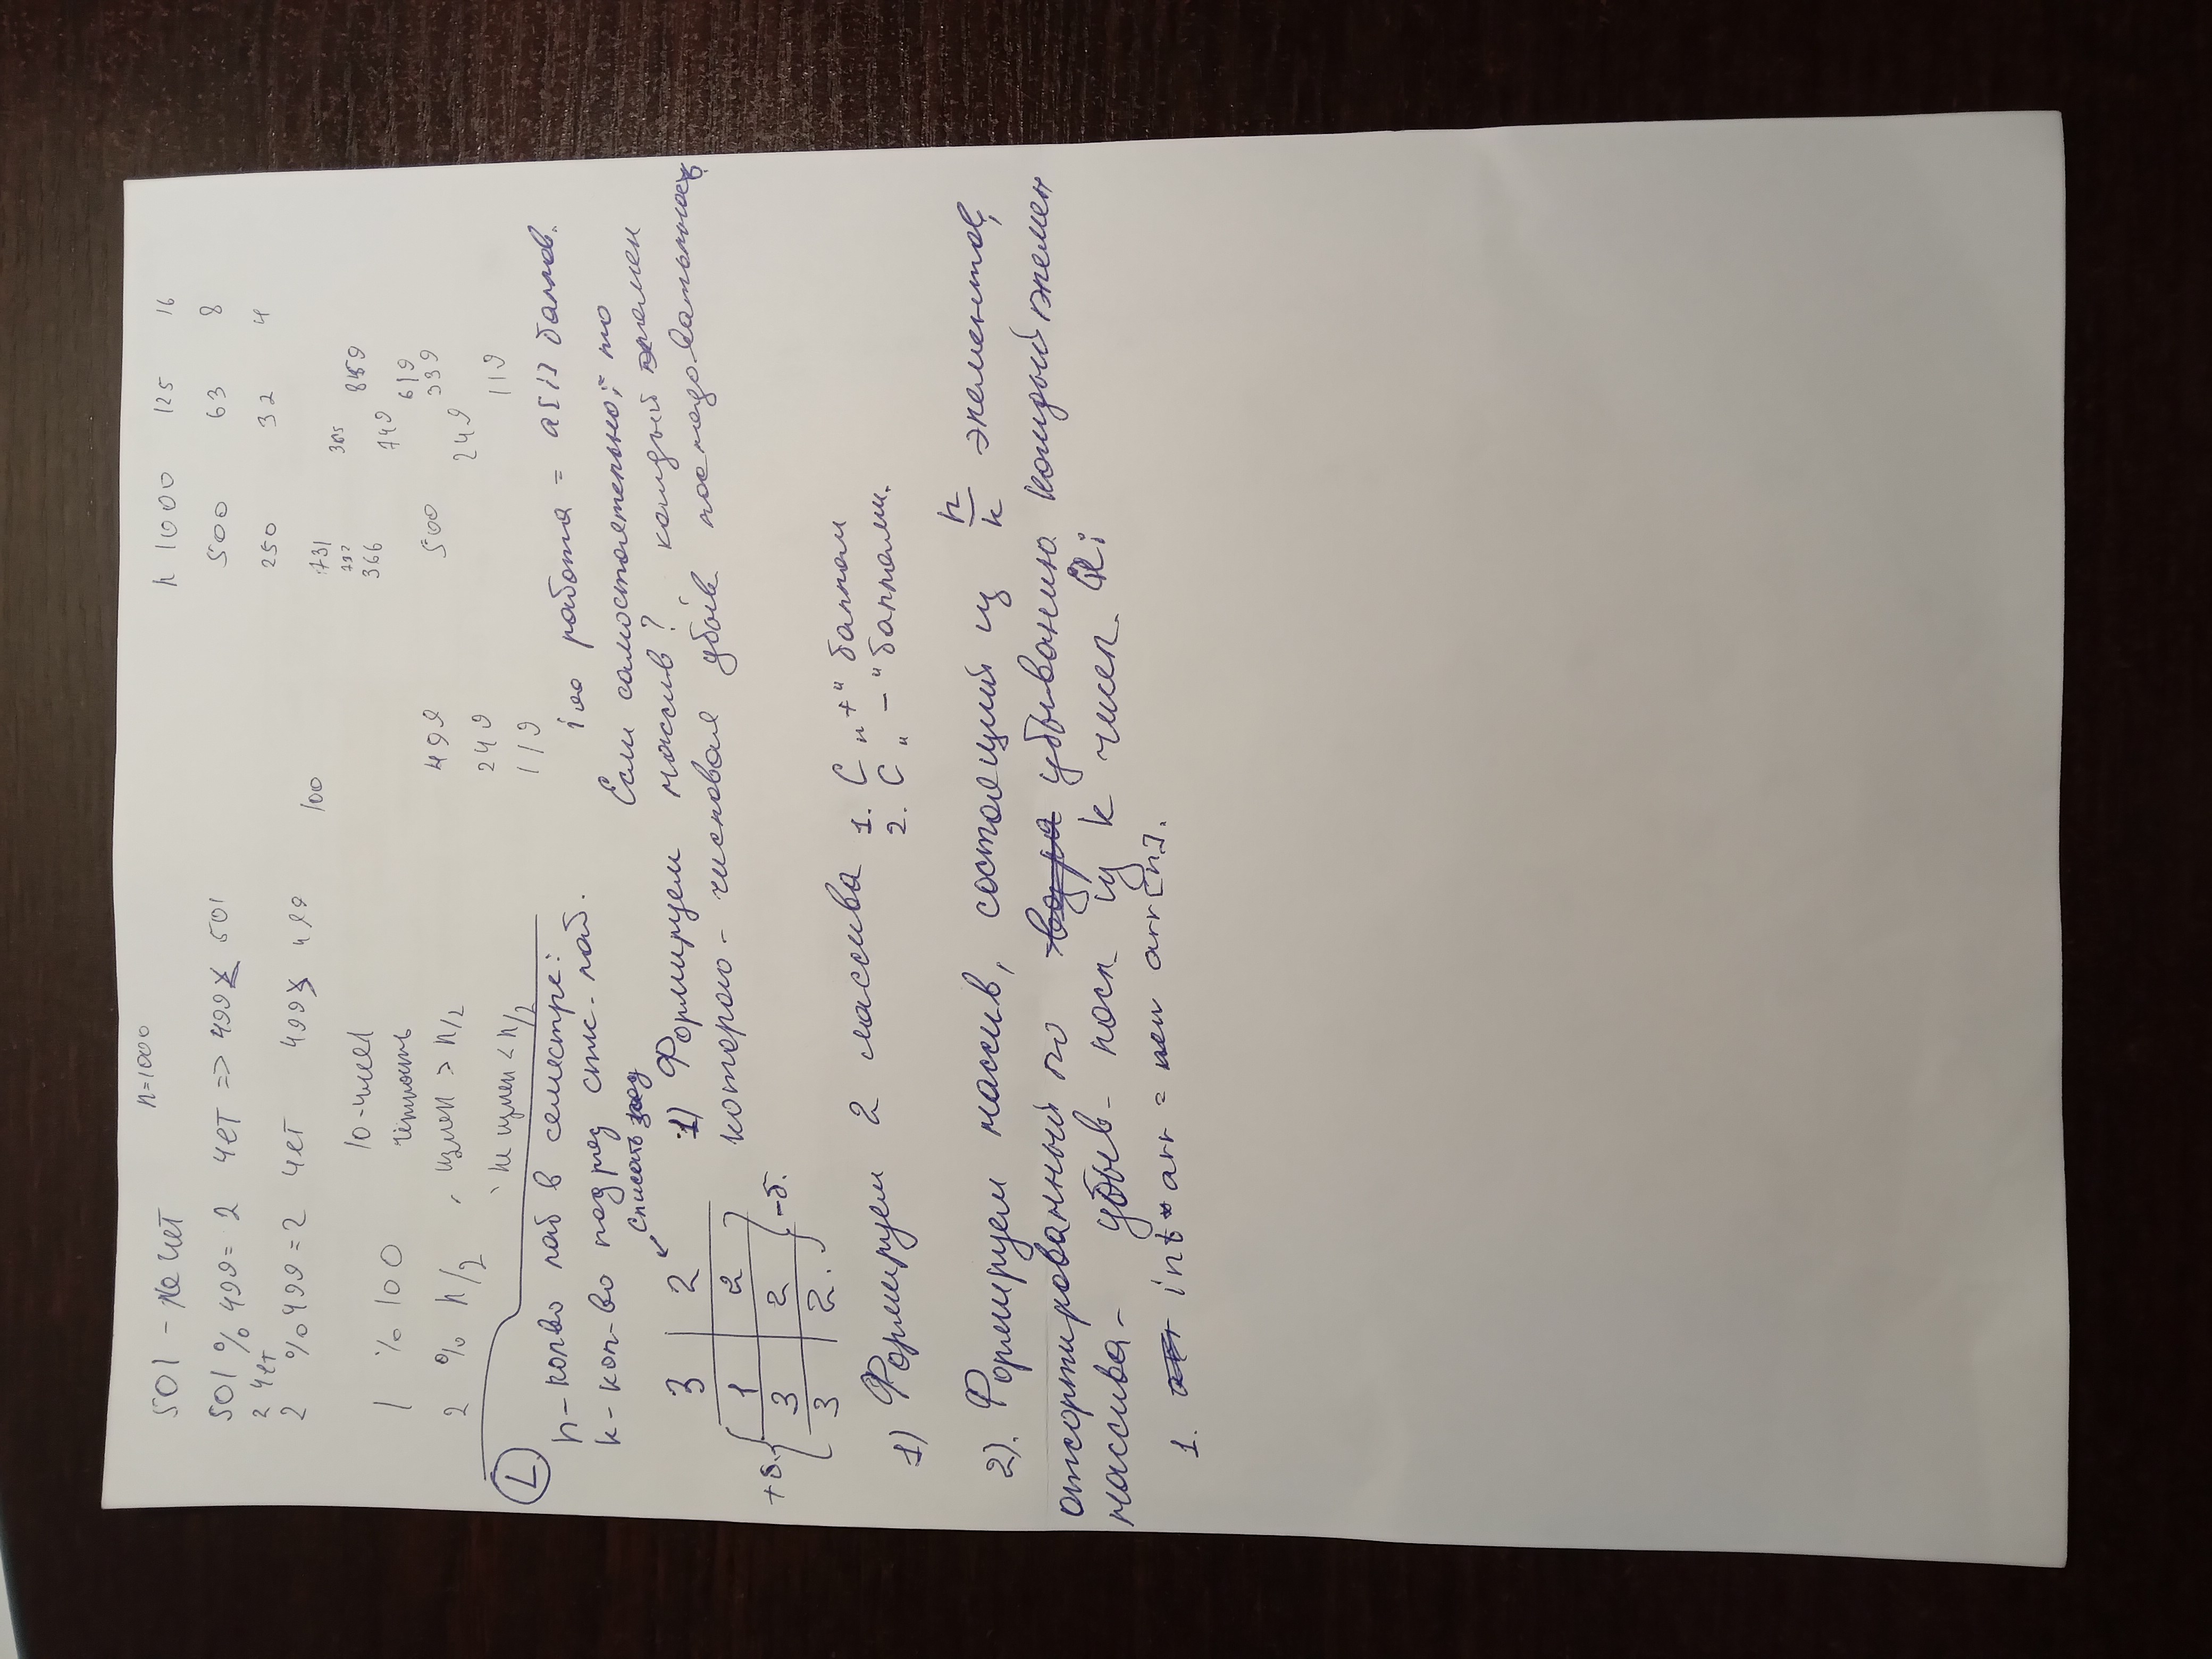 n=1000
501 - не чет
501 % 499 = 2 чет => 499 x 501
2 чет
2 % 499 = 2 чет 499 x 499
10 чисел
1 % 100 чётность
2 % n/2 , измен > n/2
не измен < n/2
n 1000 125 16
500 63 8
250 32 4
100
731
365
366
749
619
499 500 339
249 249
119 119
L
n - кол-во лаб в семестре:
k - кол-во подряд спис. лаб.
i ая работа = a[i] баллов.
Если самостоятельно, то
Списать
3 2
1 2
3 2
3 2.
+б. -б.
1) Формируем массив?, каждый элемен
которого - числовая убыв последовательность
1) Формируем 2 массива 1. С „+“ баллом
2. С „-“ баллами.
2). Формируем массив, состоящий из n/k элементов,
отсортированный по убыванию каждый элемен
массива - убыв - посл. из k чисел.
1. int* arr = new arr[n].